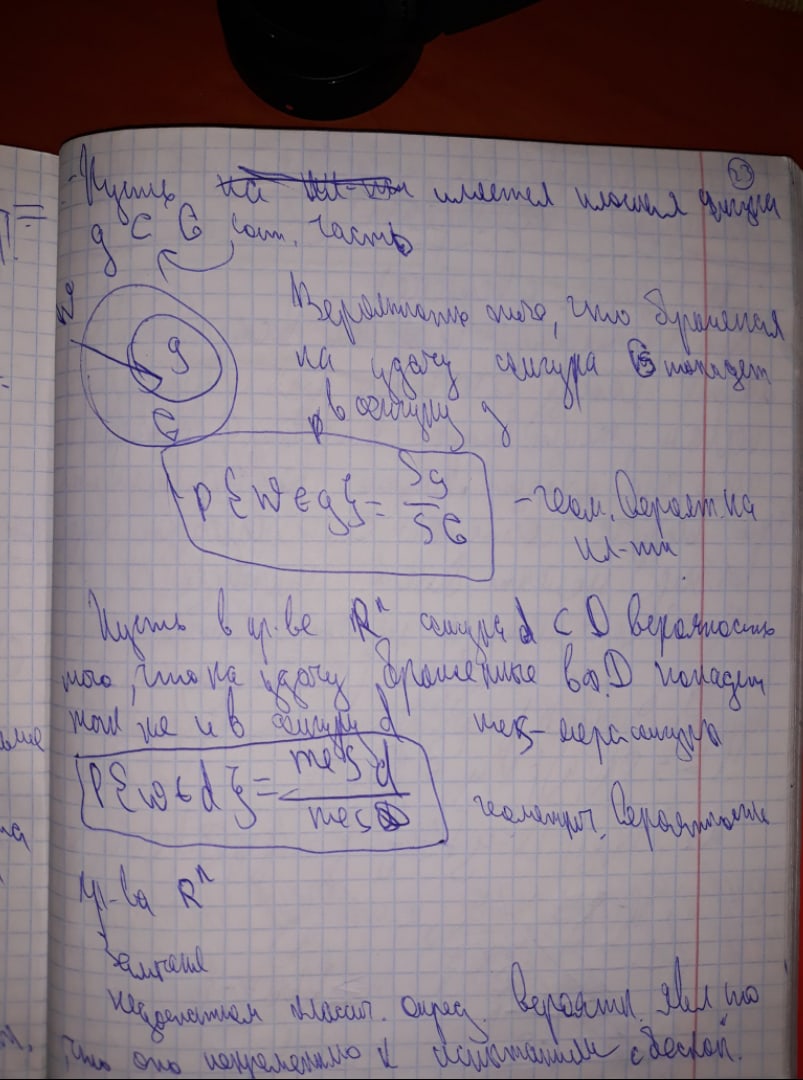 23
- Пусть ~~на пл-ти~~ имеется плоская фигура
g ⊂ G сост. часть
Вероятность того, что брошенная
на удачу фигура G попадет
в фигуру g
w
g
G
P{W ∈ g} = Sg / SG
- геом. Вероят. на
пл-ти
Пусть в пр-ве Rⁿ фигура d ⊂ D вероятность
того, что на удачу брошенные в ф. D попадет
так же и в фигуру d mes - мера фигуры
P{w ∈ d} = mes d / mes D
геометрич. Вероятность
пр-ва Rⁿ
недостатком класич. опред. вероятн. явл то
что оно неприменимо к испытаниям с бескон.